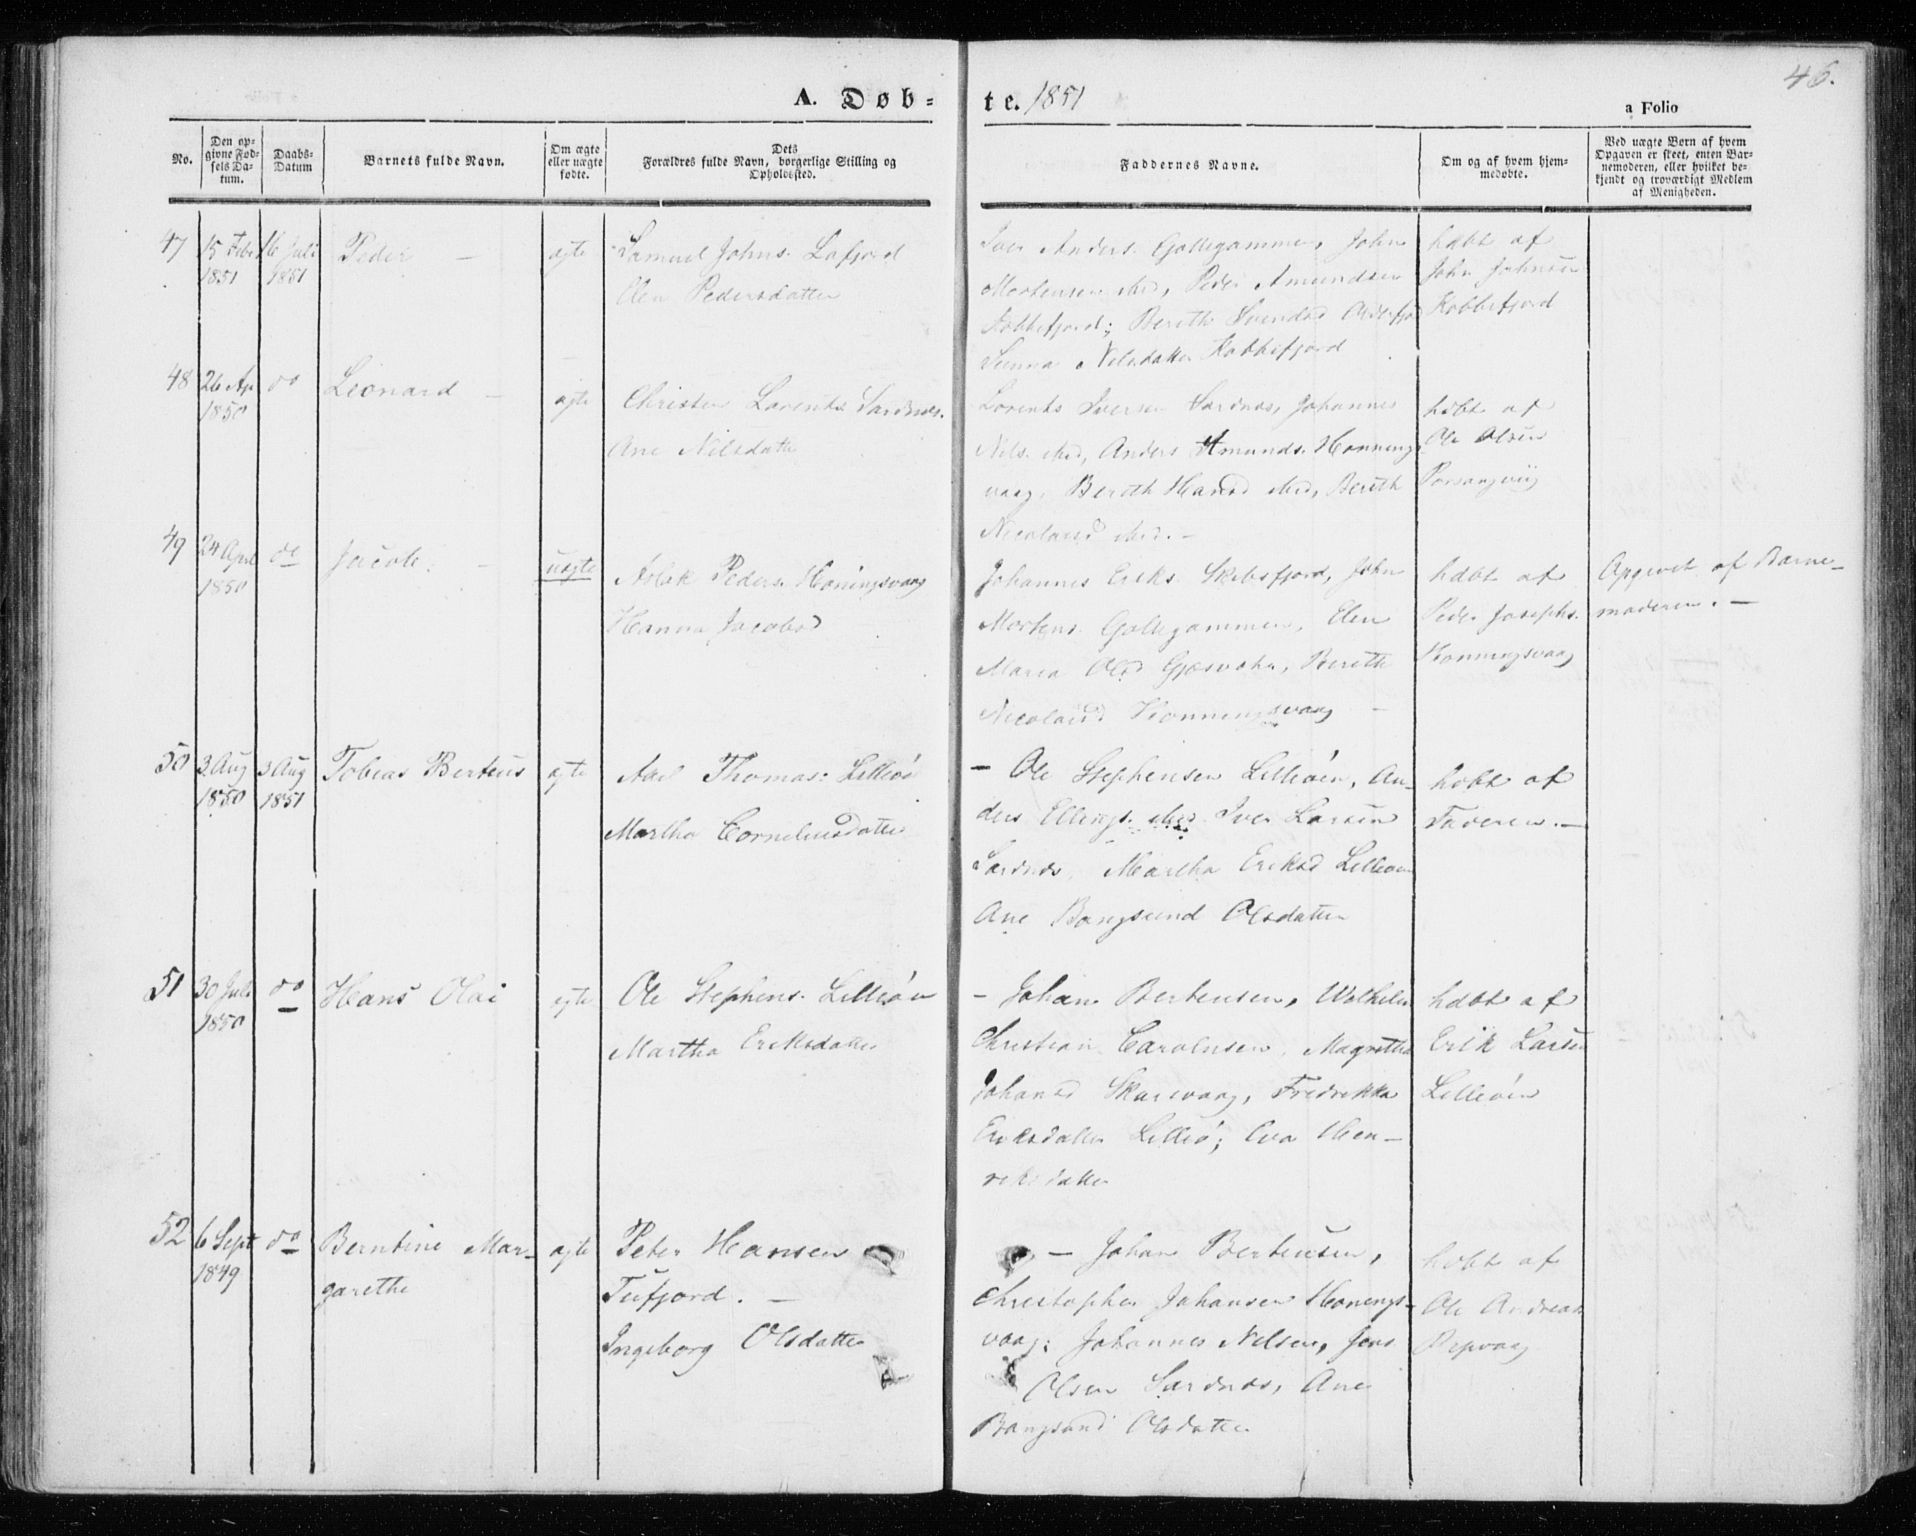 46.
A. Døb-
te. 1851
a Folio
No.
Den op-
givne Fød-
sels Da-
tum.
Daabs-
Datum
Barnets fulde Navn.
Om ægte
eller uægte
fødte.
Dets
Forældres fulde Navn, borgerlige Stilling og
Opholdssted.
Faddernes Navne.
Om og af hvem hjem-
medøbte.
Ved uægte Børn af hvem
Opgaven er skeet, enten Bar-
nemoderen, eller hvilket be-
kjendt og troværdigt Medlem
af Menigheden.
47
15 Febr
1851
16 Juli
1851
Peder –
ægte
Samuel Johns. Lafjord
Elen Pedersdatter
Iver Anders. Gollegammen, John
Mortensen ibid, Peder Amundsen
Kobbefjord; Bereth Svendsd Olderfjord
Sunna Nilsdatter Kobbefjord
høbt af
John Johnsen
Kobbefjord
48
26 Ap
1850
do
Leonard –
ægte
Christen Lorents. Sardnæs.
Ane Nilsdatter
Lorents Iversen Sardnæs, Johannes
Nils. ibid, Anders Amunds. Honnings
vaag. Bereth Hansd ibid, Bereth
Nicolaisd ibid. –
høbt af
Ole Olsen
Porsangvig
49
24 April
1850
do
Jacob. –
uægte
Aslak Peders. Honingsvaag
Hanna Jacobsd
Johannes Eriks. Skibsfjord, John
Mortens. Gollegammen, Elen
Maria Olsd Gjesvohr, Bereth
Nicolaisd Honningsvaag –
høbt af
Peder Josephs.
Honningsvaag
Opgivet af Barne-
moderen. –
50
3 Aug
1850
3 Aug
1851
Tobias Berteus
ægte
Axel Thomas: Lilleø
Martha Corneliusdatter
– Ole Stephensen Lilleøen, An-
ders Ellings. ibid Iver Larsen
Sardnæs, Martha Eriksd Lilleøen
Ane Bangsund Olsdatter
høbt af
Faderen. –
51
30 Juli
1850
do
Hans Olai
ægte
Ole Stephens. Lilleøen
Martha Eriksdatter
– Johan Bertensen, Wilhelm
Christian Carolusen, Magretha
Johansd Skarsvaag, Fredrekka
Eriksdatter Lilleø; Eva Hen-
riksdatter
høbt af
Erik Larsen
Lilleøen
52
6 Sept
1849
do
Berntine Mar-
garethe
ægte
Peter Hansen
Tufjord. –
Ingeborg Olsdatter
– Johan Bertensen,
Christopher Johansen Honings-
vaag: Johannes Nilsen, Jens
Olsen Sardnæs, Ane
Bangsund Olsdatter
høbt af
Ole Andreas
Repvaag